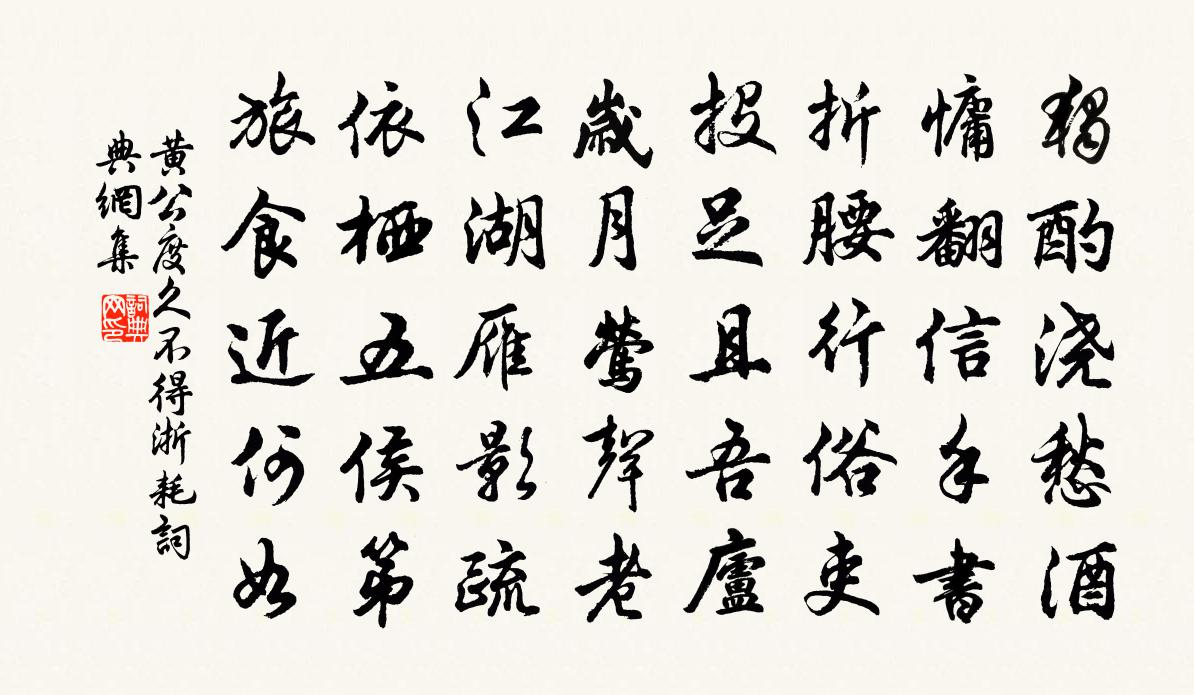 獨酌澆愁酒
慵翻信手書
折腰行俗吏
投足且吾廬
歲月鶯聲老
江湖雁影疏
依栖五侯第
旅食近何如
黃公度久不得浙耗詞
典網集
詞典網印